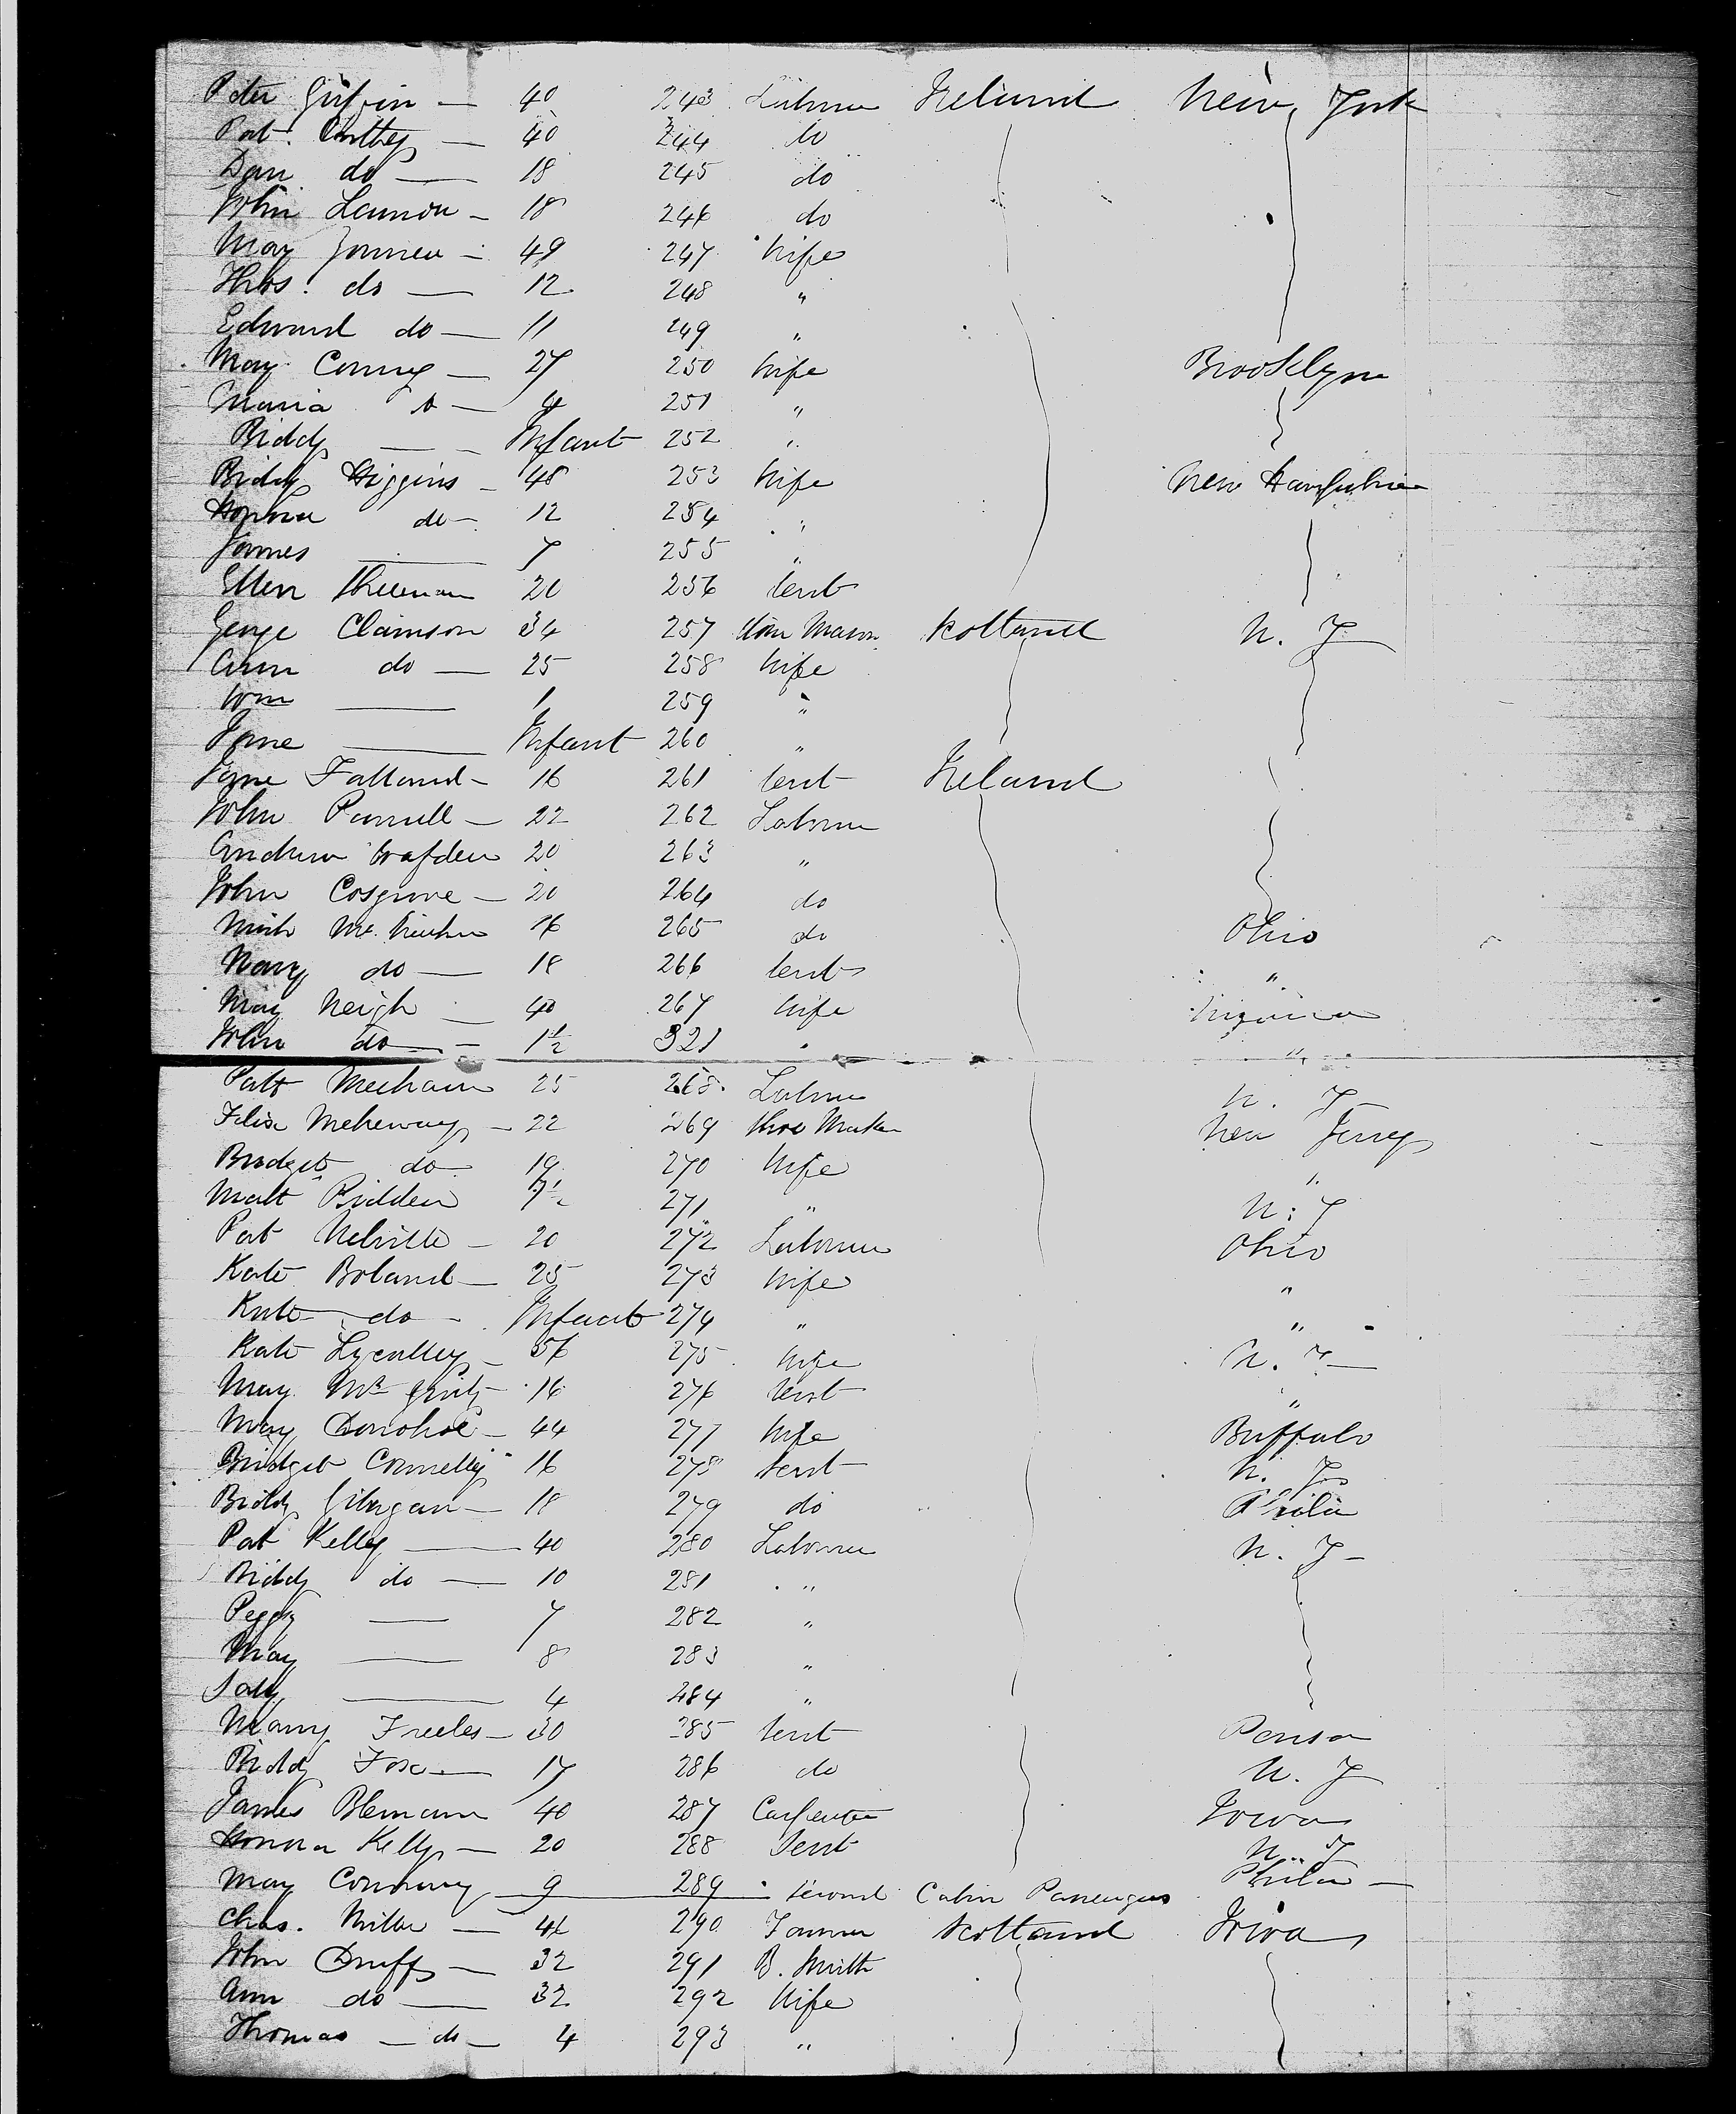 Peter Griffin — 40 243 Laborer Ireland New York
Pat. — 40 244 do
Dan do — 18 245 do
John Lennon — 18 246 do
Mary — 49 247 Wife
Thos. do — 12 248 "
Edward do — 11 249 "
Mary — 27 250 Wife Brooklyn
Maria do — 4 251 "
Biddy — Infant 252 "
Biddy Higgins — 48 253 Wife New Hampshire
Honora do — 12 254 "
James — 7 255 "
Ellen 20 256 Servt
George Clainson 34 257 Stone Mason Scotland N. Y
Ann do — 25 258 Wife
Wm — 1 259 "
Jane — Infant 260 "
Jane Falland — 16 261 Servt Ireland
John Purcell — 22 262 Laborer
Andrew 20 263 "
John Cosgrove — 20 264 do
Mich 16 265 do Ohio
Mary do — 18 266 Servt "
Mary Neigh — 40 267 Wife Virginia
John do — 1½ 321 " "
Patt Meehan 25 268 Laborer N. Y
Felix — 22 269 Shoe Maker New Jersey
Bridget do — 19 270 Wife "
Matt 271 " N. Y
Pat Melville — 20 272 Laborer Ohio
Kate Boland — 25 273 Wife "
Kate do — Infant 274 " "
Kate — 56 275 Wife N. Y —
Mary — 16 276 Servt "
Mary Donohoe — 44 277 Wife Buffalo
Bridget Connelly 16 278 Servt N. Y
Biddy — 18 279 do Phila
Pat Kelly — 40 280 Laborer N. Y —
Biddy do — 10 281 "
Peggy — 7 282 "
Mary — 8 283 "
Sally — 4 284 "
Nancy Freeles — 30 285 Servt Pensa
Biddy Fox — 17 286 do N. Y
James 40 287 Carpenter Iowa
Honora Kelly — 20 288 Servt N. Y
Mary Conway 9 289 " Phila —
Second Cabin Passengers
Chas. — 290 Farmer Scotland Iowa
John Duff — 32 291 B. Smith
Ann do — 32 292 Wife
Thomas — do — 4 293 "